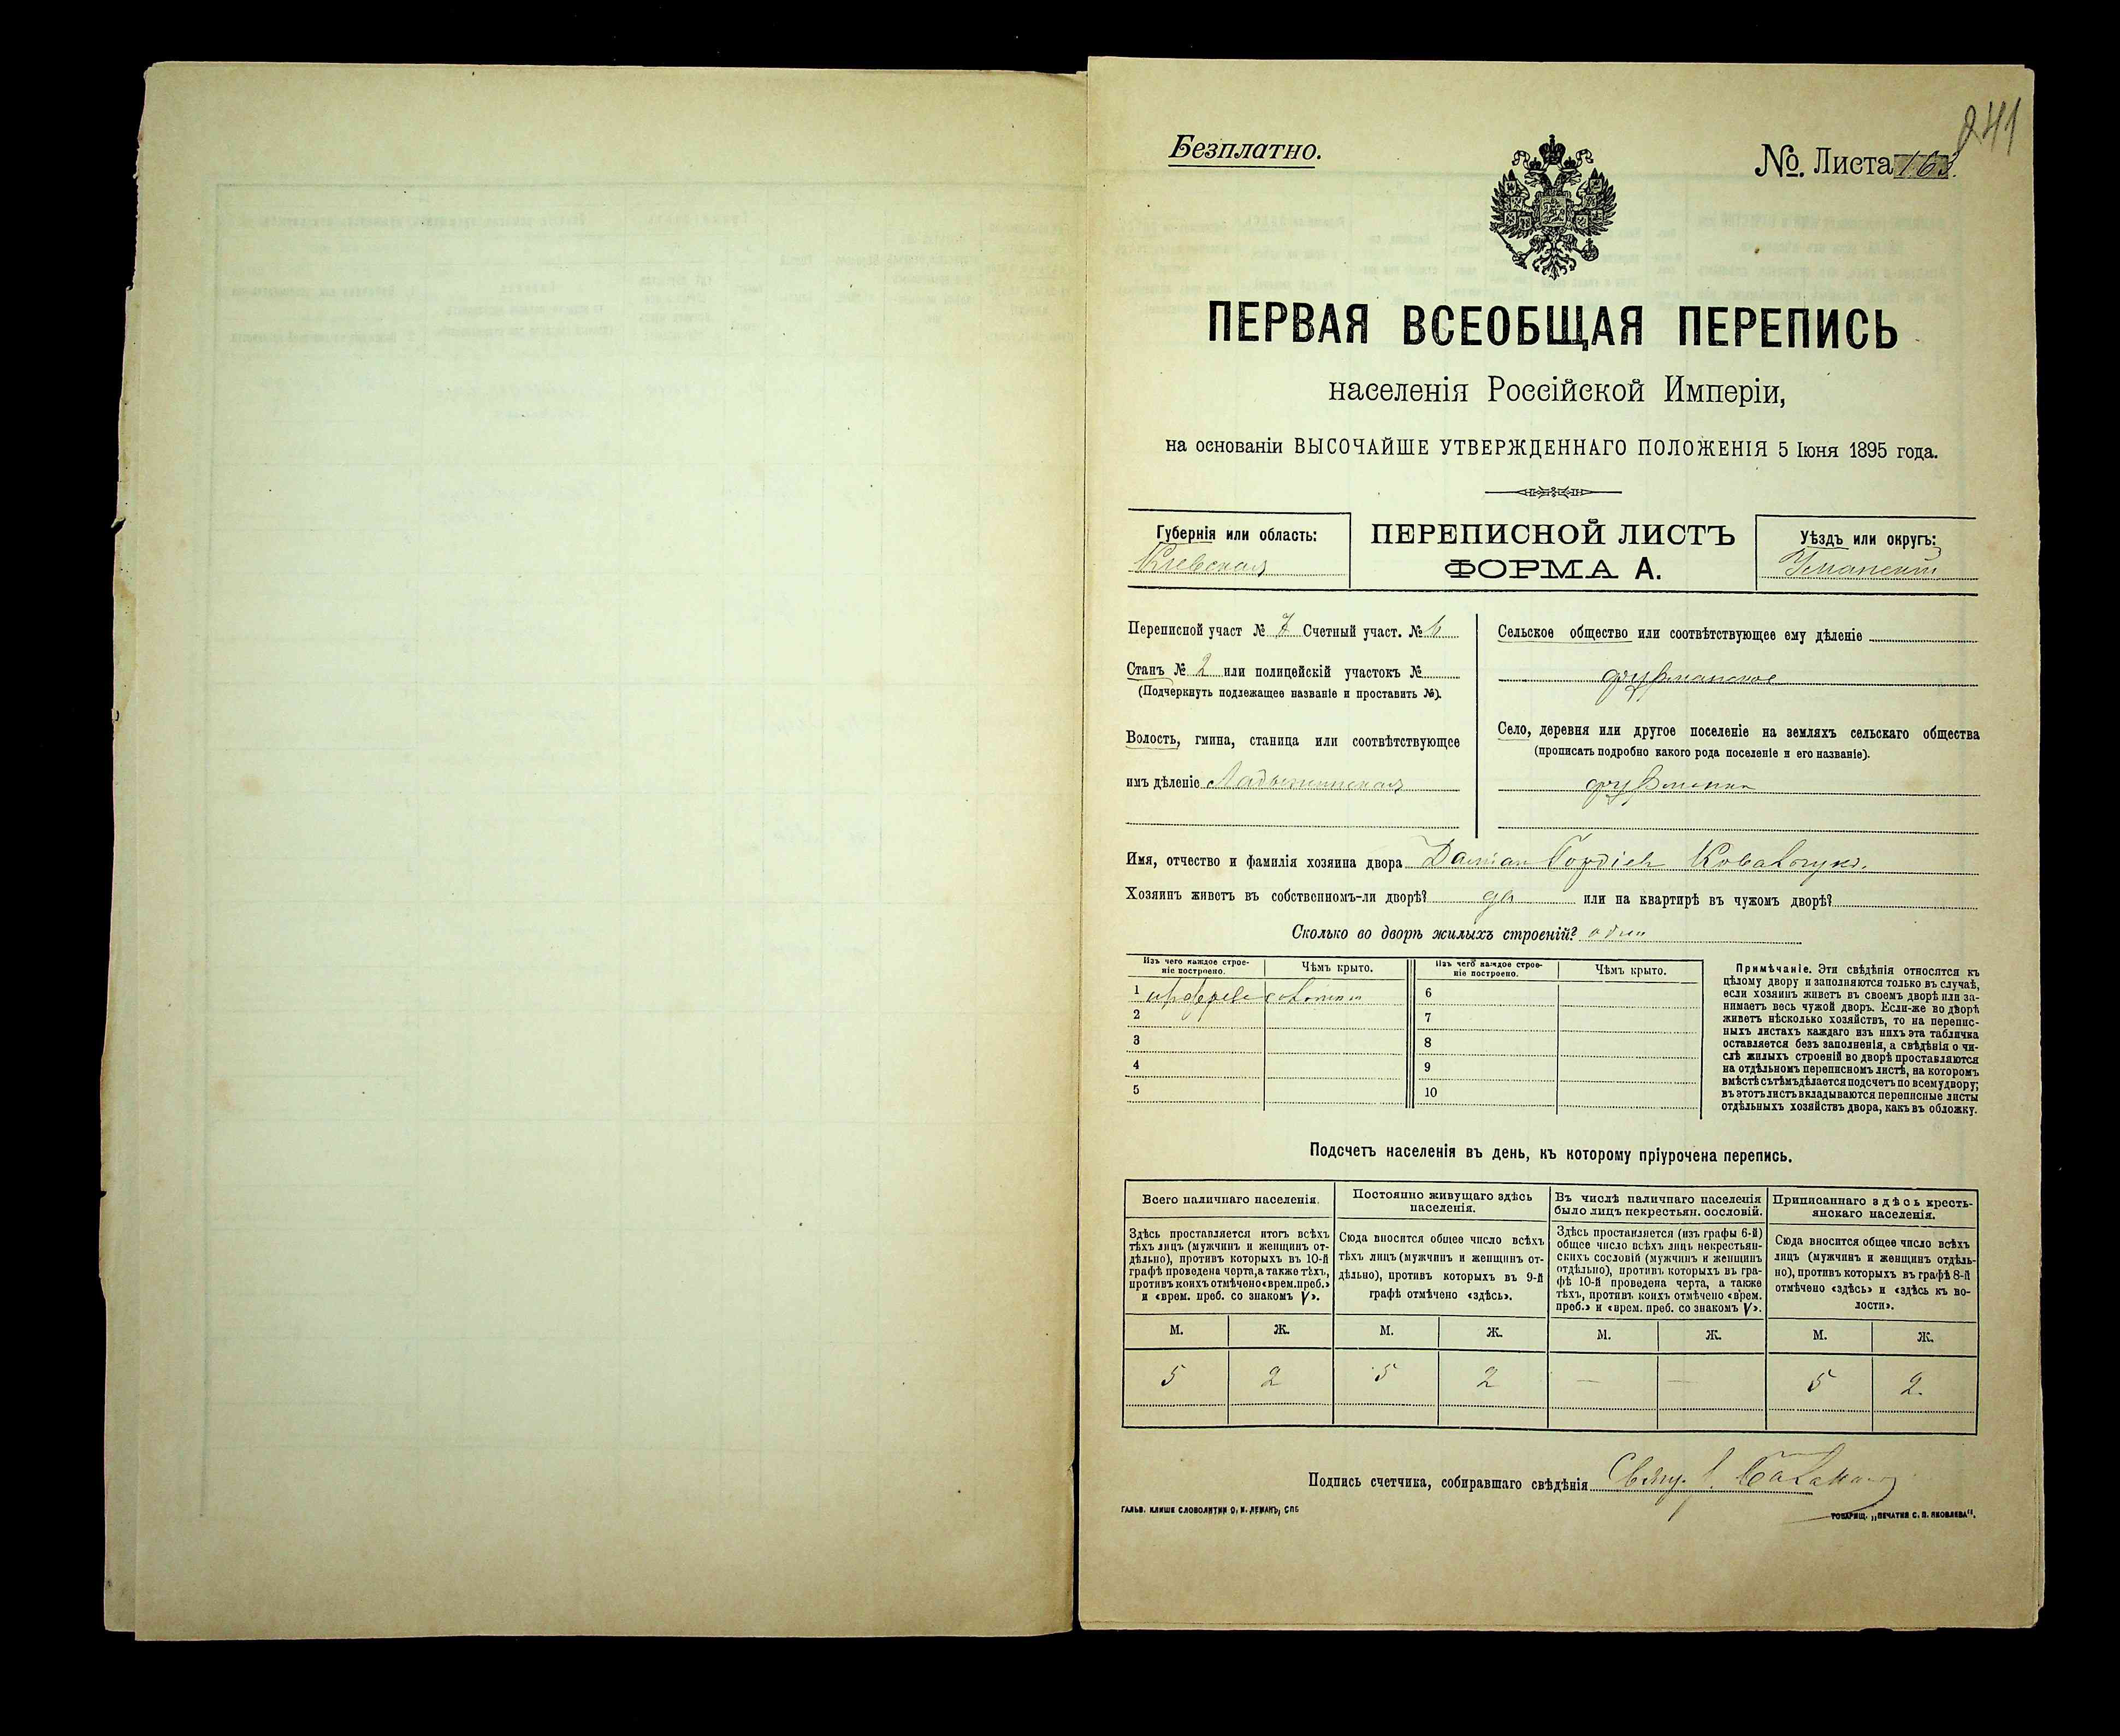 241
Безплатно.
№. Листа 163.
ПЕРВАЯ ВСЕОБЩАЯ ПЕРЕПИСЬ
населенія Россійской Имперіи,
на основаніи ВЫСОЧАЙШЕ УТВЕРЖДЕННАГО ПОЛОЖЕНІЯ 5 Іюня 1895 года.
Губернія или область:
Кіевская
ПЕРЕПИСНОЙ ЛИСТЪ
ФОРМА А.
Уѣздъ или округъ:
Уманскій
Переписной участ № 7 Счетный участ. № 6
Станъ № 2 или полицейскій участокъ №
(Подчеркнуть подлежащее названіе и проставить №).
Волость, гмина, станица или соотвѣтствующее
имъ дѣленіе Ладыжинская
Сельское общество или соотвѣтствующее ему дѣленіе
Село, деревня или другое поселеніе на земляхъ сельскаго общества
(прописать подробно какого рода поселеніе и его названіе).
Имя, отчество и фамилія хозяина двора
Хозяинъ живетъ въ собственномъ-ли дворѣ? да или на квартирѣ въ чужомъ дворѣ?
Сколько во дворѣ жилыхъ строеній? один
Изъ чего каждое строе-
ніе построено.
Чѣмъ крыто.
Изъ чего каждое строе-
ніе построено.
Чѣмъ крыто.
1 соломой
2
3
4
5
6
7
8
9
10
Примѣчаніе. Эти свѣдѣнія относятся къ
цѣлому двору и заполняются только въ случаѣ,
если хозяинъ живетъ въ своемъ дворѣ или за-
нимаетъ весь чужой дворъ. Если-же во дворѣ
живетъ нѣсколько хозяйствъ, то на перепис-
ныхъ листахъ каждаго изъ нихъ эта табличка
оставляется безъ заполненія, а свѣдѣнія о чи-
слѣ жилыхъ строеній во дворѣ проставляются
на отдѣльномъ переписномъ листѣ, на которомъ
вмѣстѣ съ тѣмъ дѣлается подсчетъ по всему двору;
въ этотъ листъ вкладываются переписные листы
отдѣльныхъ хозяйствъ двора, какъ въ обложку.
Подсчетъ населенія въ день, къ которому пріурочена перепись.
Всего наличнаго населенія.
Здѣсь проставляется итогъ всѣхъ
тѣхъ лицъ (мужчинъ и женщинъ от-
дѣльно), противъ которыхъ въ 10-й
графѣ проведена черта, а также тѣхъ,
противъ коихъ отмѣчено «врем. преб.»
и «врем. преб. со знакомъ V».
Постоянно живущаго здѣсь
населенія.
Сюда вносится общее число всѣхъ
тѣхъ лицъ (мужчинъ и женщинъ от-
дѣльно), противъ которыхъ въ 9-й
графѣ отмѣчено «здѣсь».
Въ числѣ наличнаго населенія
было лицъ некрестьян. сословій.
Здѣсь проставляется (изъ графы 6-й)
общее число всѣхъ лицъ некрестьян-
скихъ сословій (мужчинъ и женщинъ
отдѣльно), противъ которыхъ въ гра-
фѣ 10-й проведена черта, а также
тѣхъ, противъ коихъ отмѣчено «врем.
преб.» и «врем. преб. со знакомъ V».
Приписаннаго здѣсь кресть-
янскаго населенія.
Сюда вносится общее число всѣхъ
лицъ (мужчинъ и женщинъ отдѣль-
но), противъ которыхъ въ графѣ 8-й
отмѣчено «здѣсь» и «здѣсь къ во-
лости».
М. Ж. М. Ж. М. Ж. М. Ж.
5 2 5 2 — — 5 2.
Подпись счетчика, собиравшаго свѣдѣнія
ГАЛЬВ. КЛИШЕ СЛОВОЛИТНИ О. И. ЛЕМАНЪ, СПБ
ТОВАРИЩ. „ПЕЧАТНЯ С. П. ЯКОВЛЕВА".